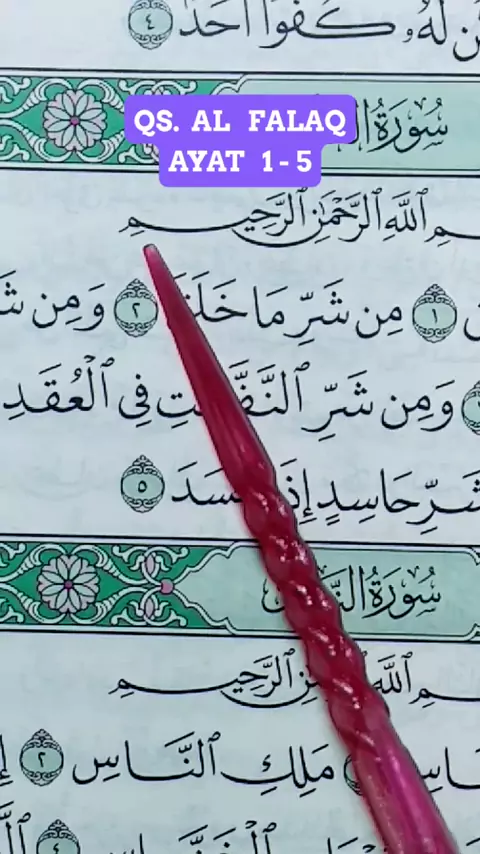 لَّهُۥ كُفُوًا أَحَدٌۢ ٤
QS. AL FALAQ
AYAT 1-5
سُورَةُ
ٱللَّهِ ٱلرَّحْمَٰنِ ٱلرَّحِيمِ
١ مِن شَرِّ مَا خَلَقَ ٢ وَمِن
وَمِن شَرِّ ٱلنَّفَّٰثَٰتِ فِى ٱلْعُقَدِ
شَرِّ حَاسِدٍ إِذَا حَسَدَ ٥
سُورَةُ النَّاسِ
ٱللَّهِ ٱلرَّحْمَٰنِ ٱلرَّحِيمِ
مَلِكِ ٱلنَّاسِ ٢
٤